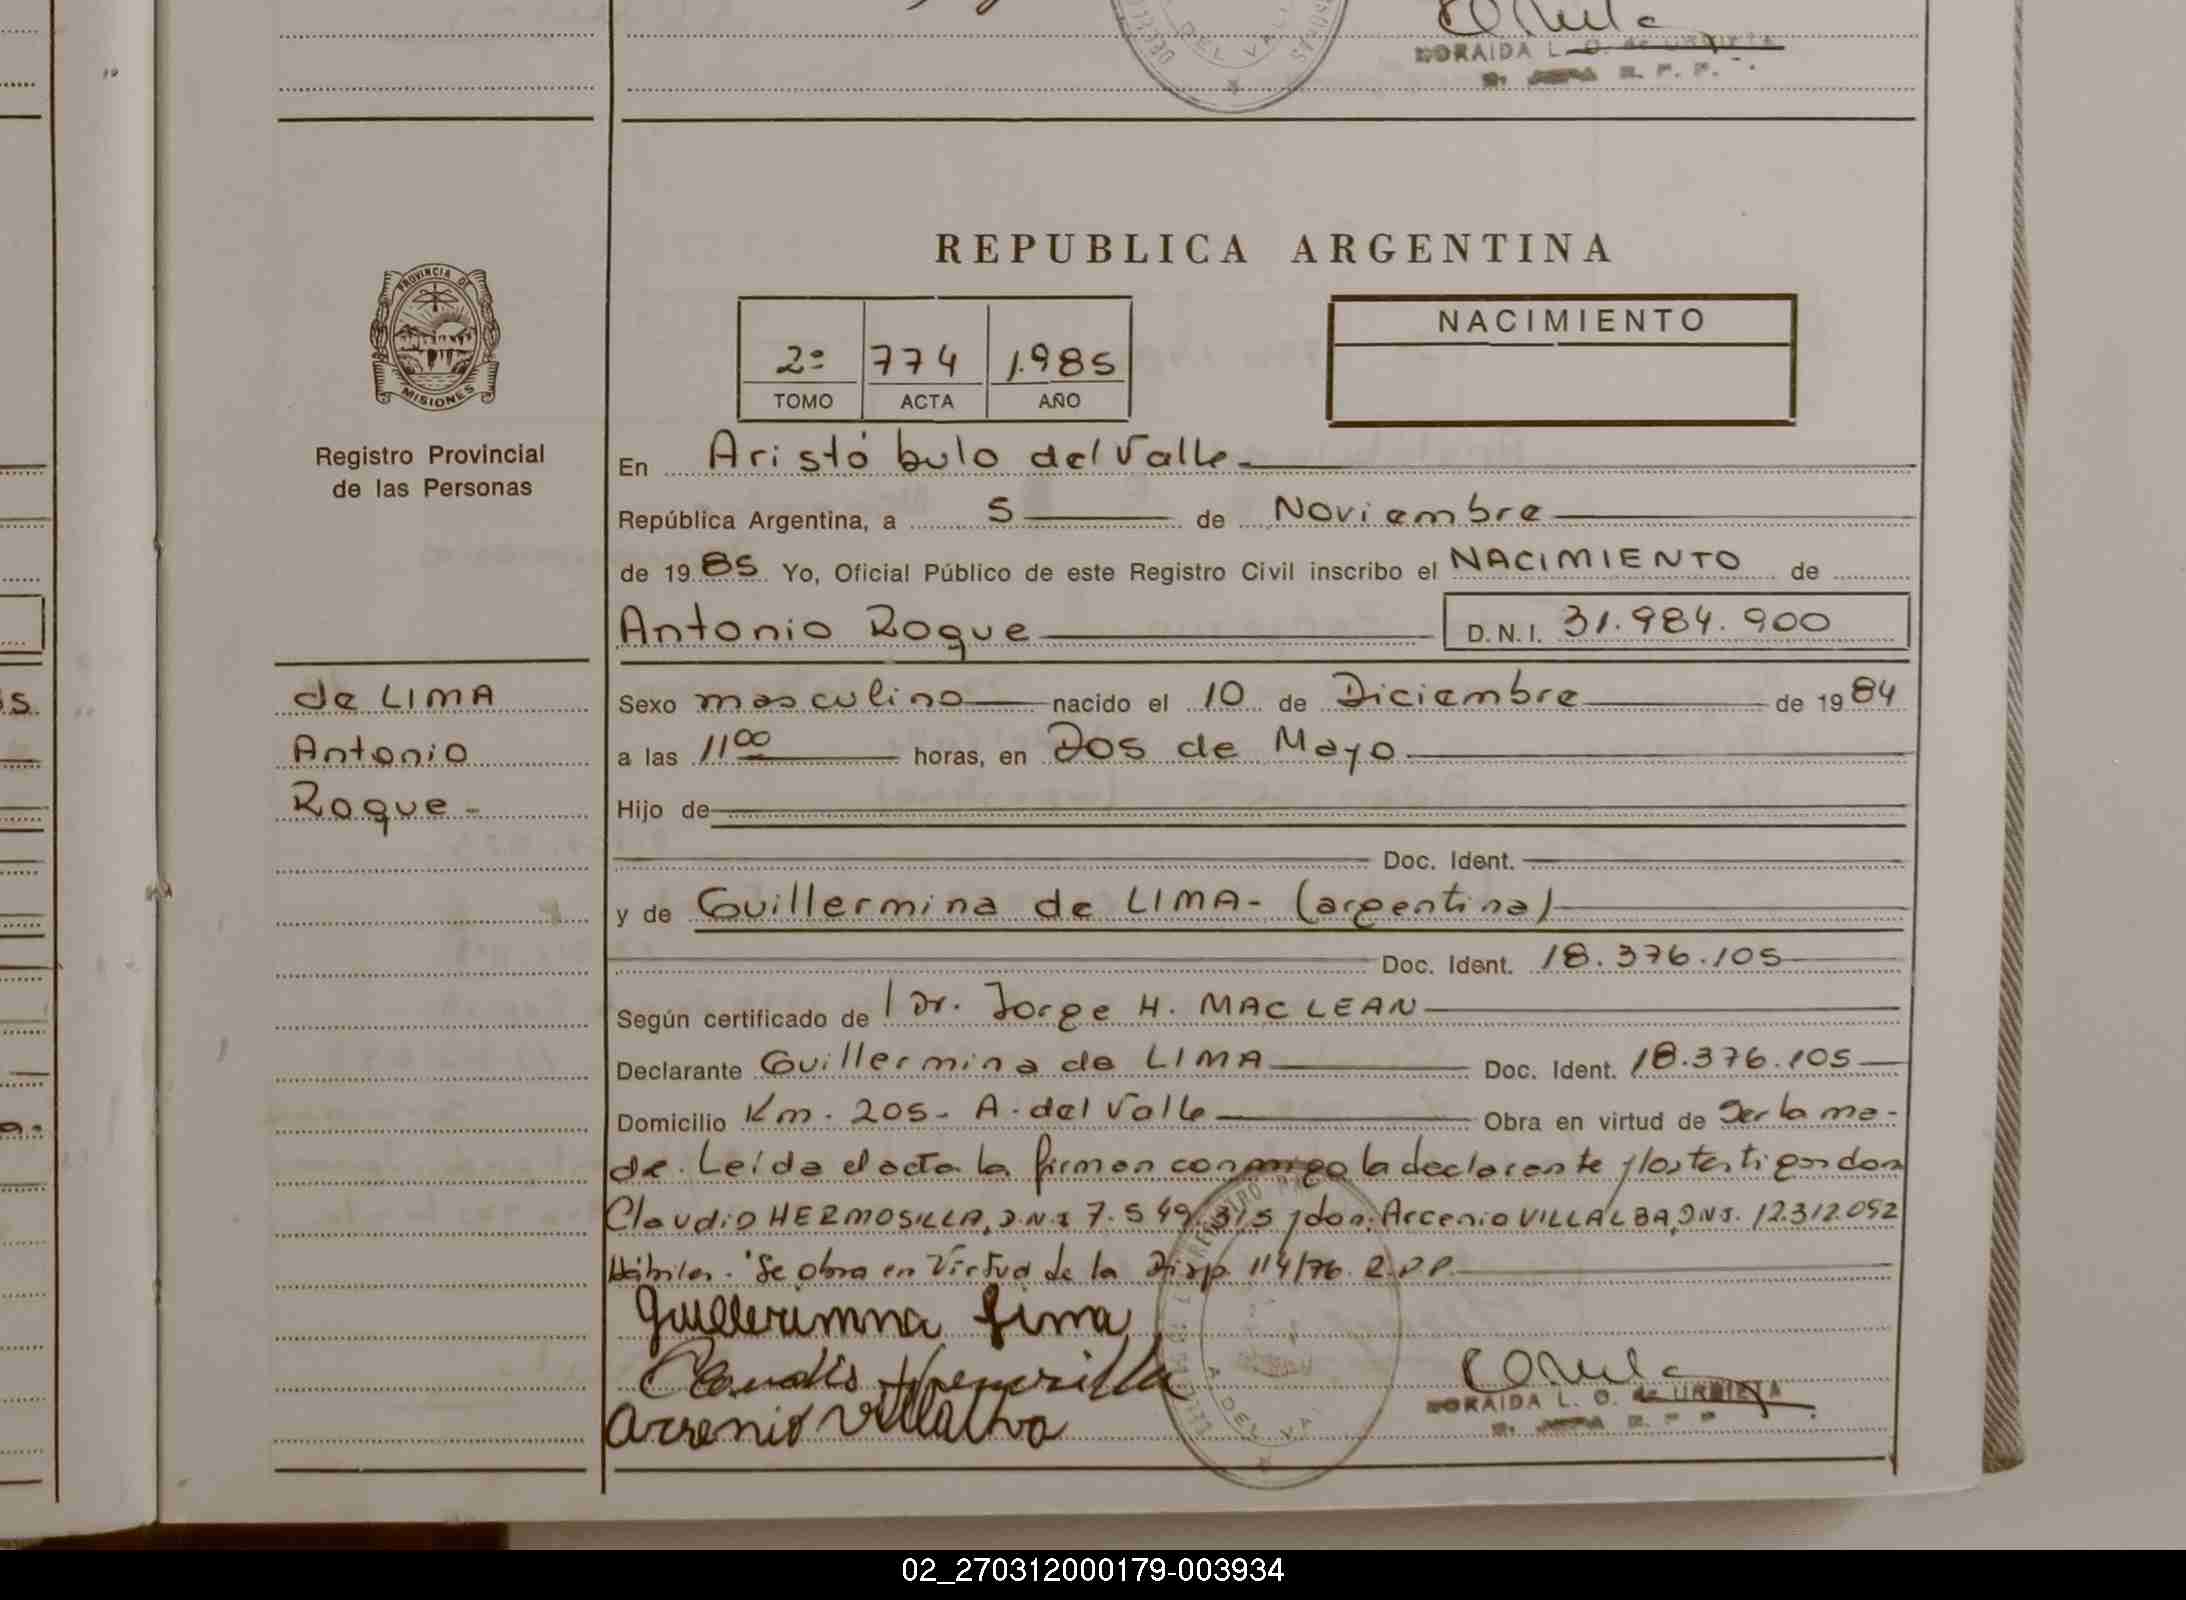 DEL VALLE
ZORAIDA L. O. de URBIETA
R. P. P.
REPUBLICA ARGENTINA
PROVINCIA DE
MISIONES
NACIMIENTO
2º 774 1.985
TOMO ACTA AÑO
Registro Provincial
de las Personas
En Aristóbulo del Valle
República Argentina, a 5 de Noviembre
de 1985 Yo, Oficial Público de este Registro Civil inscribo el NACIMIENTO de
Antonio Roque D.N.I. 31.984.900
de LIMA
Antonio
Roque-
Sexo masculino nacido el 10 de Diciembre de 1984
a las 11 00 horas, en Dos de Mayo
Hijo de
Doc. Ident.
y de Guillermina de LIMA- (argentina)
Doc. Ident. 18.376.105
Según certificado de Dr. Jorge H. MAC LEAN
Declarante Guillermina de LIMA Doc. Ident. 18.376.105
Domicilio Km. 205- A. del Valle Obra en virtud de Ser la ma-
dre. Leída el acta la firman conmigo la declarante y los testigos don
Claudio HERMOSILLA, D.N.I 7.549.315 y don: Arcenio VILLALBA, D.N.I. 12.312.052
Hábiles. Se obra en Virtud de la Disp. 114/76. R.P.P.
Guillerimna Lima
Claudio Hermosilla
Arcenio Villalva
A. DEL VA
ZORAIDA L. O. de URBIETA
R. P. P.
02_270312000179-003934